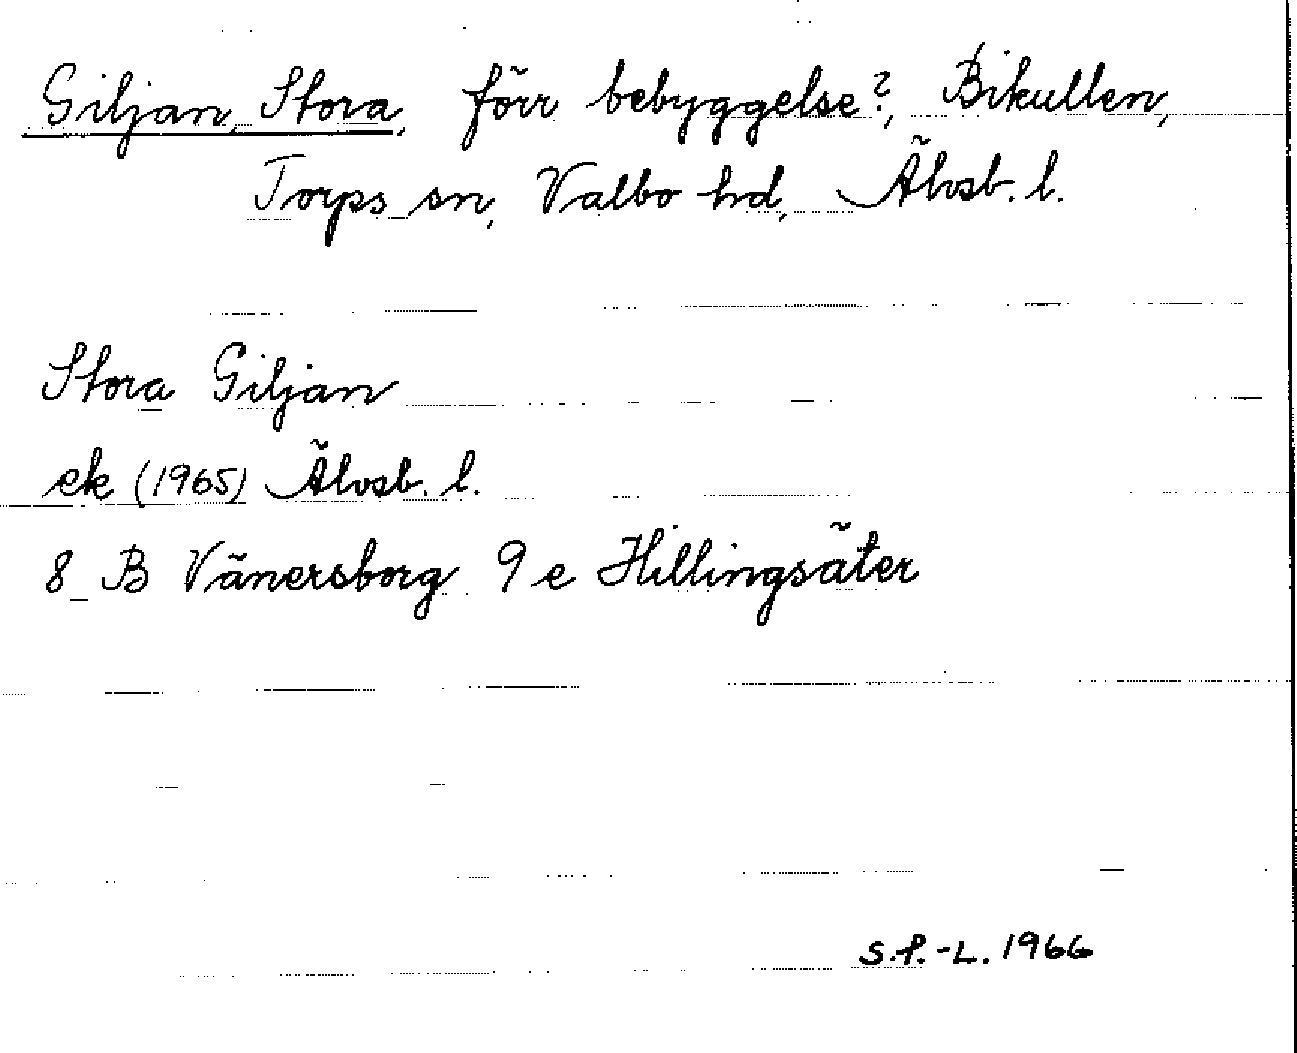 Giljan, Stora, förr bebyggelse?, Bikullen,
Torps sn, Valbo hd, Älvsb. l.
Stora Giljan
ek (1965) Älvsb. l.
8 B Vänersborg 9 e Hillingsäter
S.P.-L. 1966